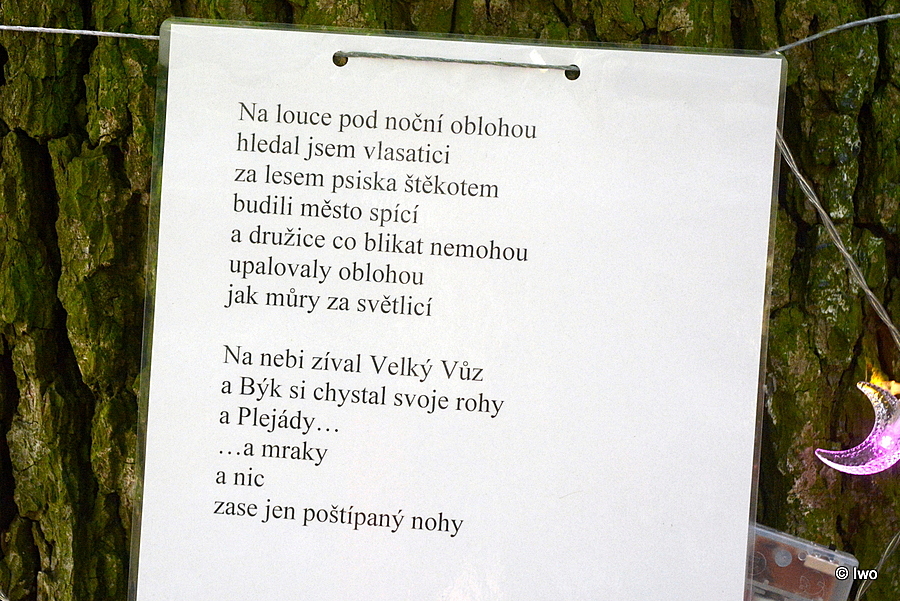 Na louce pod noční oblohou
hledal jsem vlasatici
za lesem psiska štěkotem
budili město spící
a družice co blikat nemohou
upalovaly oblohou
jak můry za světlicí
Na nebi zíval Velký Vůz
a Býk si chystal svoje rohy
a Plejády…
…a mraky
a nic
zase jen poštípaný nohy
© Iwo